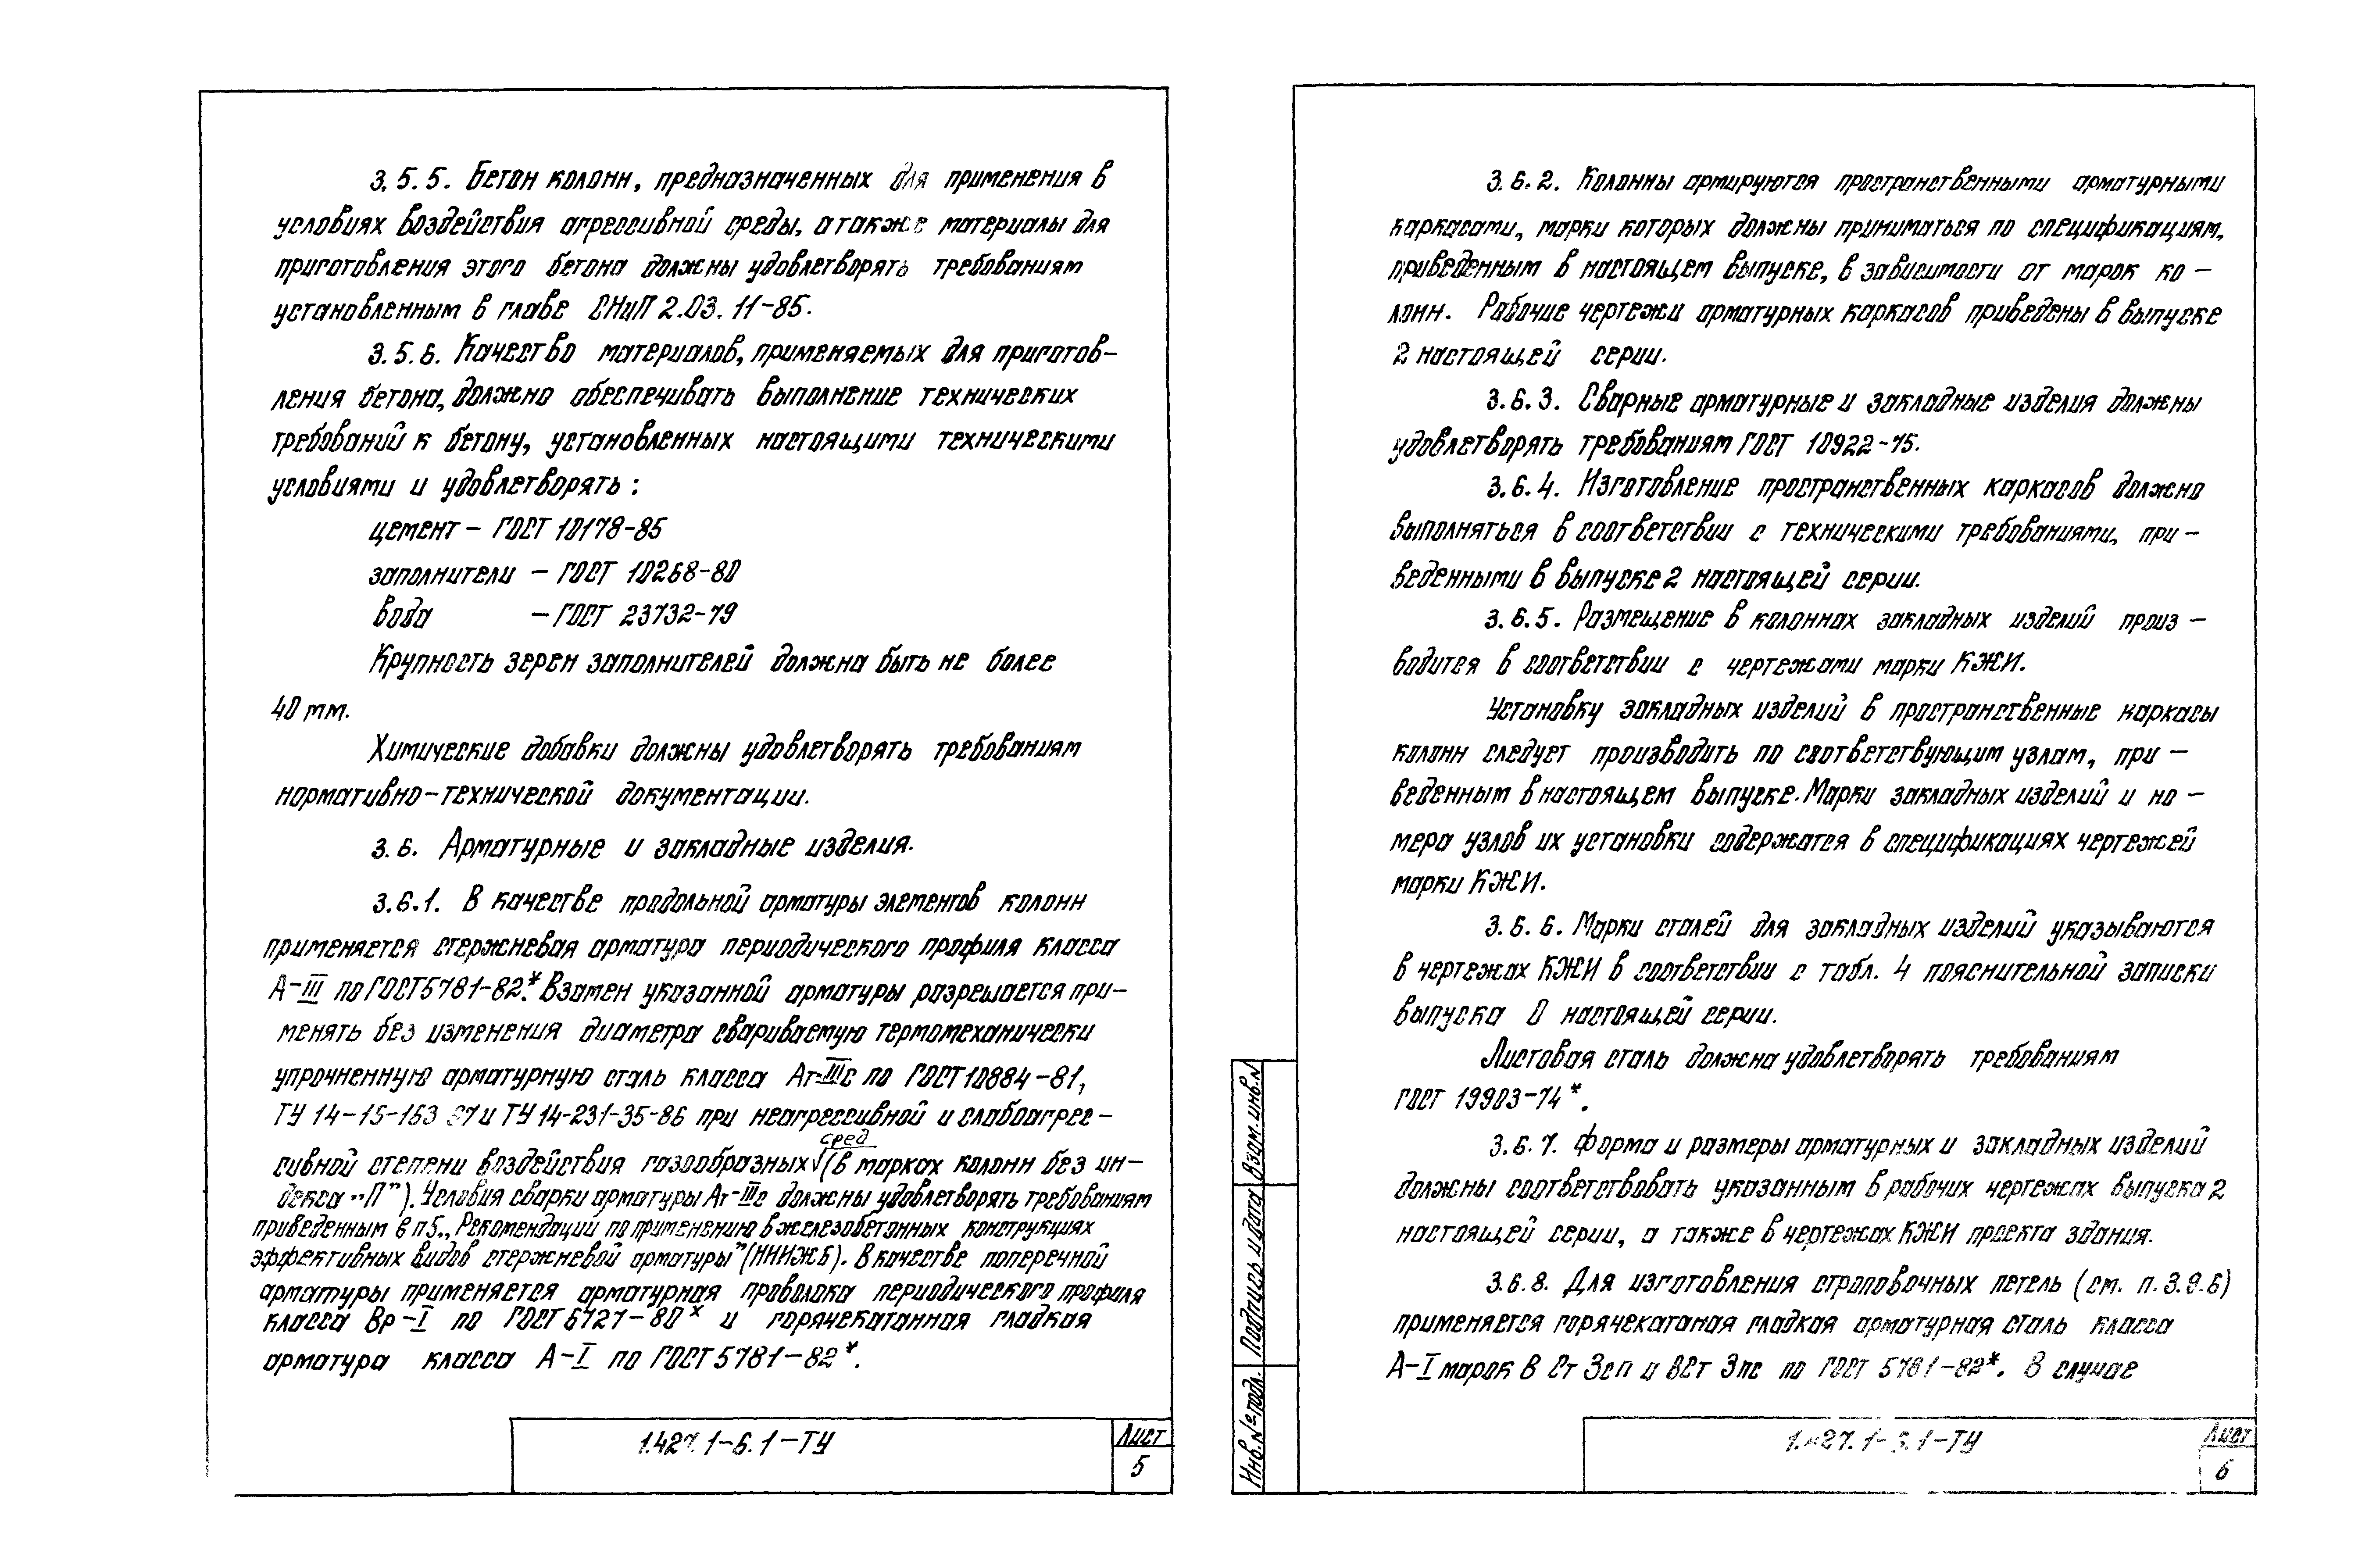 3.5.5. Бетон колонн, предназначенных для применения в
условиях воздействия агрессивной среды, а также материалы для
приготовления этого бетона должны удовлетворять требованиям
установленным в главе СНиП 2.03.11-85.
3.5.6. Качество материалов, применяемых для приготов-
ления бетона, должно обеспечивать выполнение технических
требований к бетону, установленных настоящими техническими
условиями и удовлетворять:
цемент - ГОСТ 10178-85
заполнители - ГОСТ 10268-80
вода - ГОСТ 23732-79
Крупность зерен заполнителей должна быть не более
40 мм.
Химические добавки должны удовлетворять требованиям
нормативно-технической документации.
3.6. Арматурные и закладные изделия.
3.6.1. В качестве продольной арматуры элементов колонн
применяется стержневая арматура периодического профиля класса
А-III по ГОСТ 5781-82*. Взамен указанной арматуры разрешается при-
менять без изменения диаметра свариваемую термомеханически
упрочненную арматурную сталь класса Ат-IIIс по ГОСТ 10884-81,
ТУ 14-15-153 87 и ТУ 14-231-35-86 при неагрессивной и слабоагрес-
сред
сивной степени воздействия газообразных √ (в марках колонн без ин-
декса „П"). Условия сварки арматуры Ат-IIIс должны удовлетворять требованиям
приведенным в п5 „Рекомендаций по применению в железобетонных конструкциях
эффективных видов стержневой арматуры" (НИИЖБ). В качестве поперечной
арматуры применяется арматурная проволока периодического профиля
класса Вр-I по ГОСТ 6727-80* и горячекатанная гладкая
арматура класса А-I по ГОСТ 5781-82*.
1.427.1-6.1-ТУ
Лист
5
3.6.2. Колонны армируются пространственными арматурными
каркасами, марки которых должны приниматься по спецификациям,
приведенным в настоящем выпуске, в зависимости от марок ко-
лонн. Рабочие чертежи арматурных каркасов приведены в выпуске
2 настоящей серии.
3.6.3. Сварные арматурные и закладные изделия должны
удовлетворять требованиям ГОСТ 10922-75.
3.6.4. Изготовление пространственных каркасов должно
выполняться в соответствии с техническими требованиями, при-
веденными в выпуске 2 настоящей серии.
3.6.5. Размещение в колоннах закладных изделий произ-
водится в соответствии с чертежами марки КЖИ.
Установку закладных изделий в пространственные каркасы
колонн следует производить по соответствующим узлам, при-
веденным в настоящем выпуске. Марки закладных изделий и но-
мера узлов их установки содержатся в спецификациях чертежей
марки КЖИ.
3.6.6. Марки сталей для закладных изделий указываются
в чертежах КЖИ в соответствии с табл. 4 пояснительной записки
выпуска 0 настоящей серии.
Листовая сталь должна удовлетворять требованиям
ГОСТ 19903-74*.
3.6.7. Форма и размеры арматурных и закладных изделий
должны соответствовать указанным в рабочих чертежах выпуска 2
настоящей серии, а также в чертежах КЖИ проекта здания.
3.6.8. Для изготовления строповочных петель (см. п. 3.9.6)
применяется горячекатаная гладкая арматурная сталь класса
А-I марок В Ст 3сп и ВСт 3пс по ГОСТ 5781-82*. В случае
Инв.№ подл. Подпись и дата Взам.инв.№
1.427.1-6.1-ТУ
Лист
6